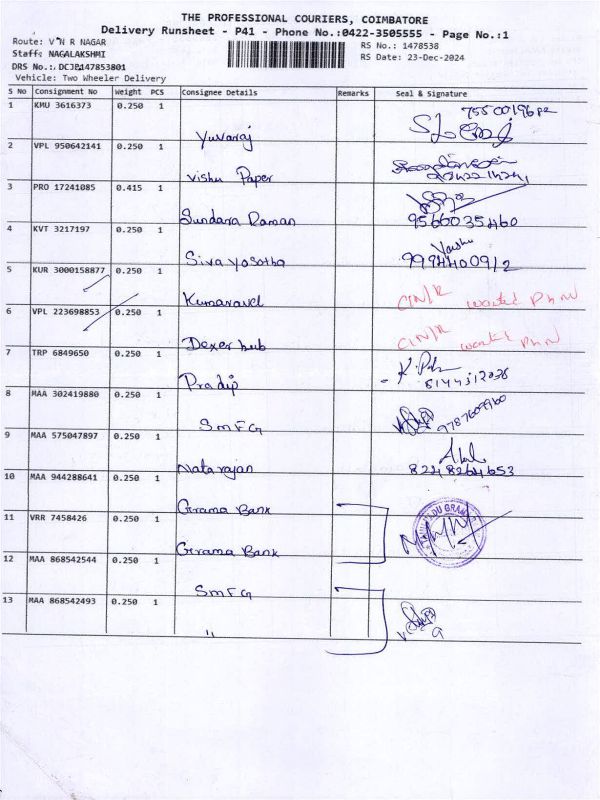 THE PROFESSIONAL COURIERS, COIMBATORE
Delivery Runsheet - P41 - Phone No.:0422-3505555 - Page No.:1
Route: V N R NAGAR
RS No.: 1478538
Staff: NAGALAKSHMI
RS Date: 23-Dec-2024
DRS No.:
Vehicle: Two Wheeler Delivery
S No Consignment No Weight PCS Consignee Details Remarks Seal & Signature
1 KMU 3616373 0.250 1
Yuvaraj
2 VPL 950642141 0.250 1
Vishu Paper
3 PRO 17241085 0.415 1
Sundara Raman 9566035460
4 KVT 3217197 0.250 1
Siva yosotha 9994400912
5 KUR 3000158877 0.250 1
Kumaravel CIN/R wanted Ph N
6 VPL 223698853 0.250 1
Dexer hub CIN/R Ph N
7 TRP 6849650 0.250 1
Pradip
8 MAA 302419880 0.250 1
SMFG
9 MAA 575047897 0.250 1
Natarajan 8248264653
10 MAA 944288641 0.250 1
Grama Bank
11 VRR 7458426 0.250 1
Grama Bank
12 MAA 868542544 0.250 1
SMFG
13 MAA 868542493 0.250 1
"